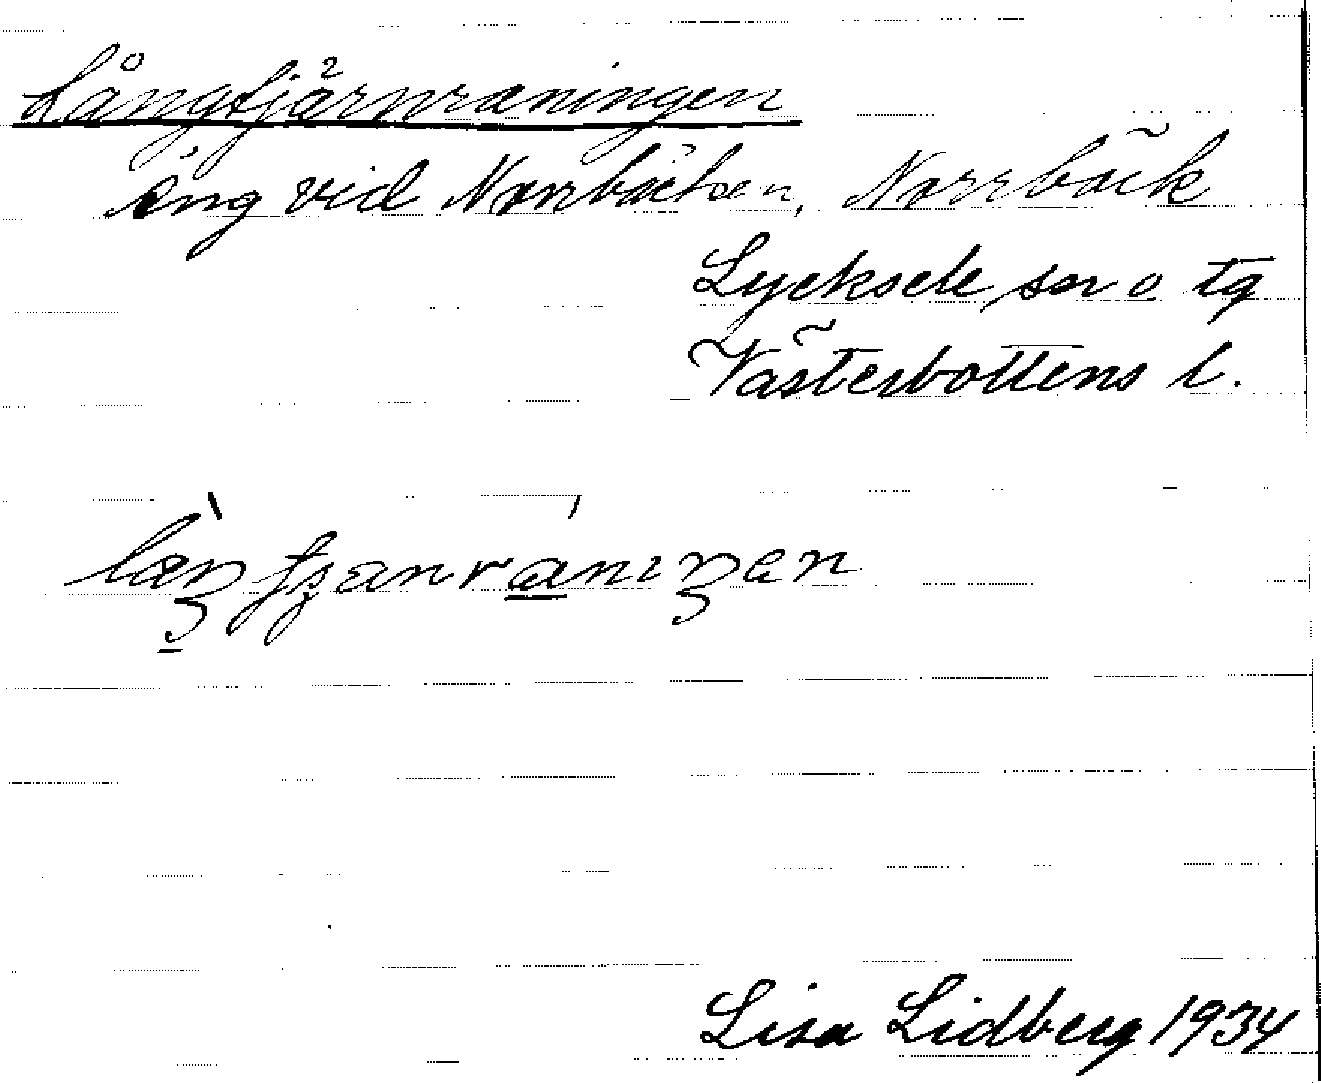 Långtjärnræningen
äng vid Norrbäcken, Norrbäck
Lycksele sn o tg
Västerbottens l.
Lisa Lidberg 1934